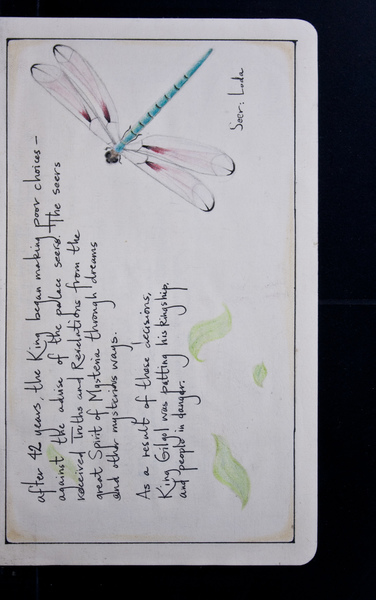 after 42 years, the King began making poor choices –
against the advise of the palace seers. The seers
received Truths and Revelations from the
great Spirit of Mysteria through dreams
and other mysterious ways.
As a result of those decisions,
King Gilgol was putting his kingship,
and people in danger.
Seer: Luda